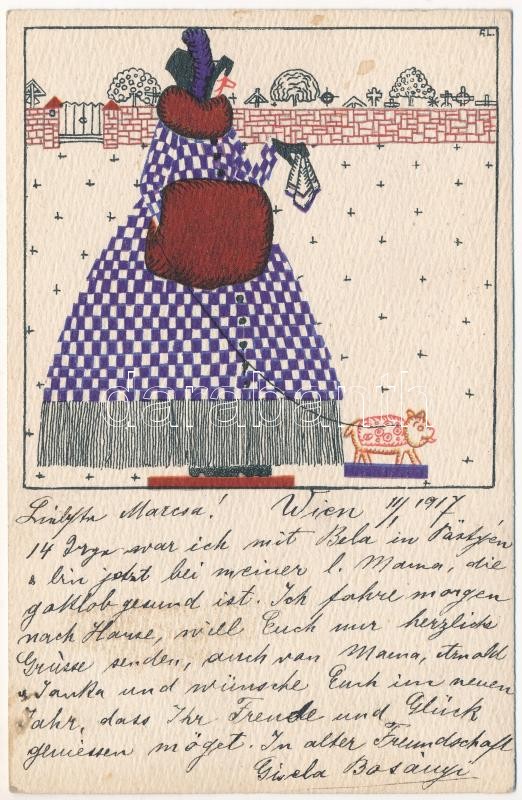 F.L.
darabanth
Liebste Marcsa! Wien 11/1 1917
14 Tage war ich mit Bela in Pöstyén
& bin jetzt bei meiner l. Mama, die
gottlob gesund ist. Ich fahre morgen
nach Hause, will Euch nur herzlich
Grüsse senden, auch von Mama, Arnold
u Janka und wünsche Euch im neuen
Jahr, dass Ihr Freude und Glück
geniessen möget. In alter Freundschaft
Gisela Bosányi